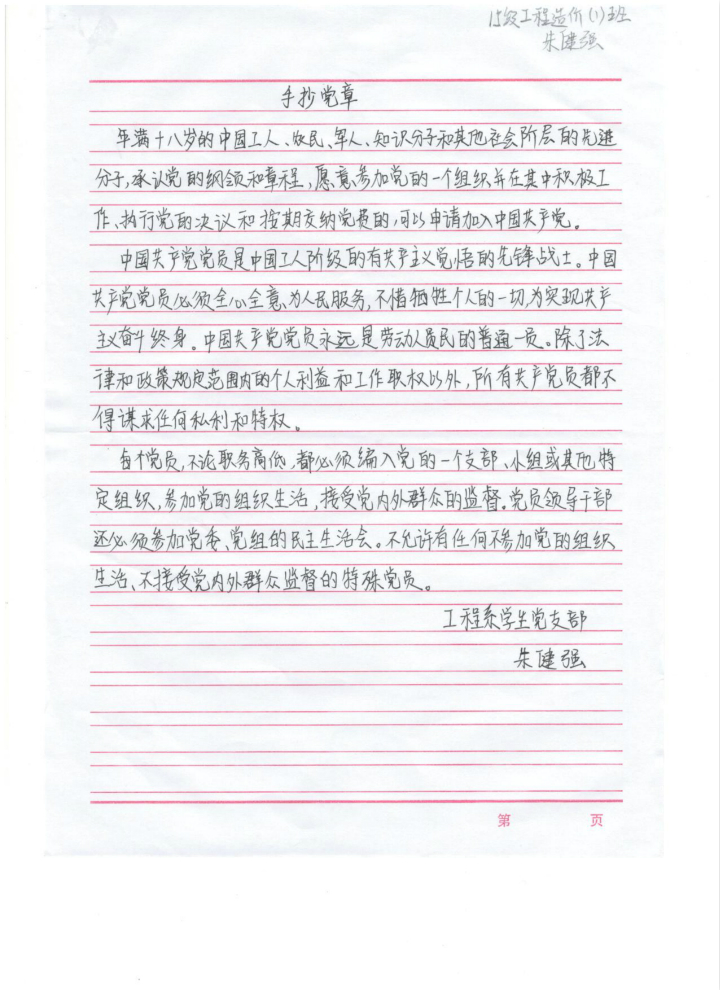 15级工程造价(1)班
朱健强
手抄党章
年满十八岁的中国工人、农民、军人、知识分子和其他社会阶层的先进
分子,承认党的纲领和章程,愿意参加党的一个组织并在其中积极工
作、执行党的决议和按期交纳党费的,可以申请加入中国共产党。
中国共产党党员是中国工人阶级的有共产主义觉悟的先锋战士。中国
共产党党员必须全心全意为人民服务,不惜牺牲个人的一切,为实现共产
主义奋斗终身。中国共产党党员永远是劳动人员民的普通一员。除了法
律和政策规定范围内的个人利益和工作职权以外,所有共产党员都不
得谋求任何私利和特权。
每个党员,不论职务高低,都必须编入党的一个支部、小组或其他特
定组织,参加党的组织生活,接受党内外群众的监督。党员领导干部
还必须参加党委、党组的民主生活会。不允许有任何不参加党的组织
生活、不接受党内外群众监督的特殊党员。
工程系学生党支部
朱健强
第 页